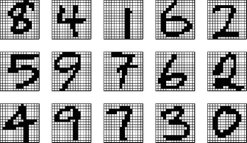 8 4 1 6 2
5 9 7 6 2
4 9 7 3 0